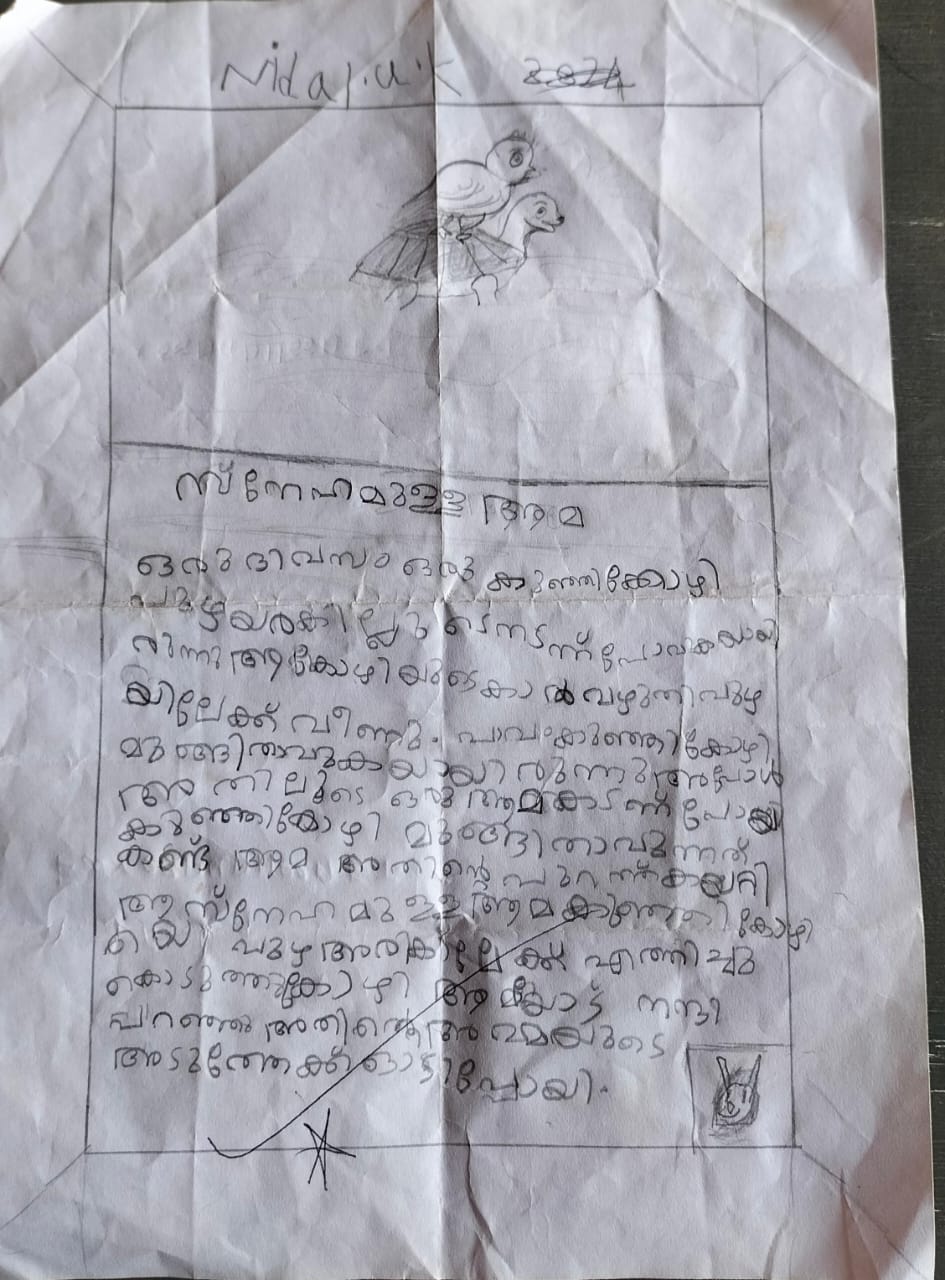 Nida p.u.k
സ്നേഹമുള്ള ആമ
ഒരു ദിവസം ഒരു കുഞ്ഞിക്കോഴി
പുഴയരികിലൂടെ നടന്ന് പോവുകയായി
രുന്നു ആ കോഴിയുടെ കാൽ വഴുതി പുഴ
യിലേക്ക് വീണു. പാവം കുഞ്ഞികോഴി
മുങ്ങിതാവുകയായിരുന്നു അപ്പോൾ
അതിലൂടെ ഒരു ആമ കടന്ന് പോയി
കുഞ്ഞികോഴി മുങ്ങിതാവുന്നത്
കണ്ട ആമ അതിന്റെ പുറത്ത് കയറ്റി
ആ സ്നേഹമുള്ള ആമ കുഞ്ഞികോഴി
യെ പുഴ അരികിലേക്ക് എത്തിച്ചു
കൊടുത്തു കോഴി ആമയോട് നന്ദി
പറഞ്ഞു അതിന്റെ അമ്മയുടെ
അടുത്തേക്ക് ഓടിപ്പോയി.